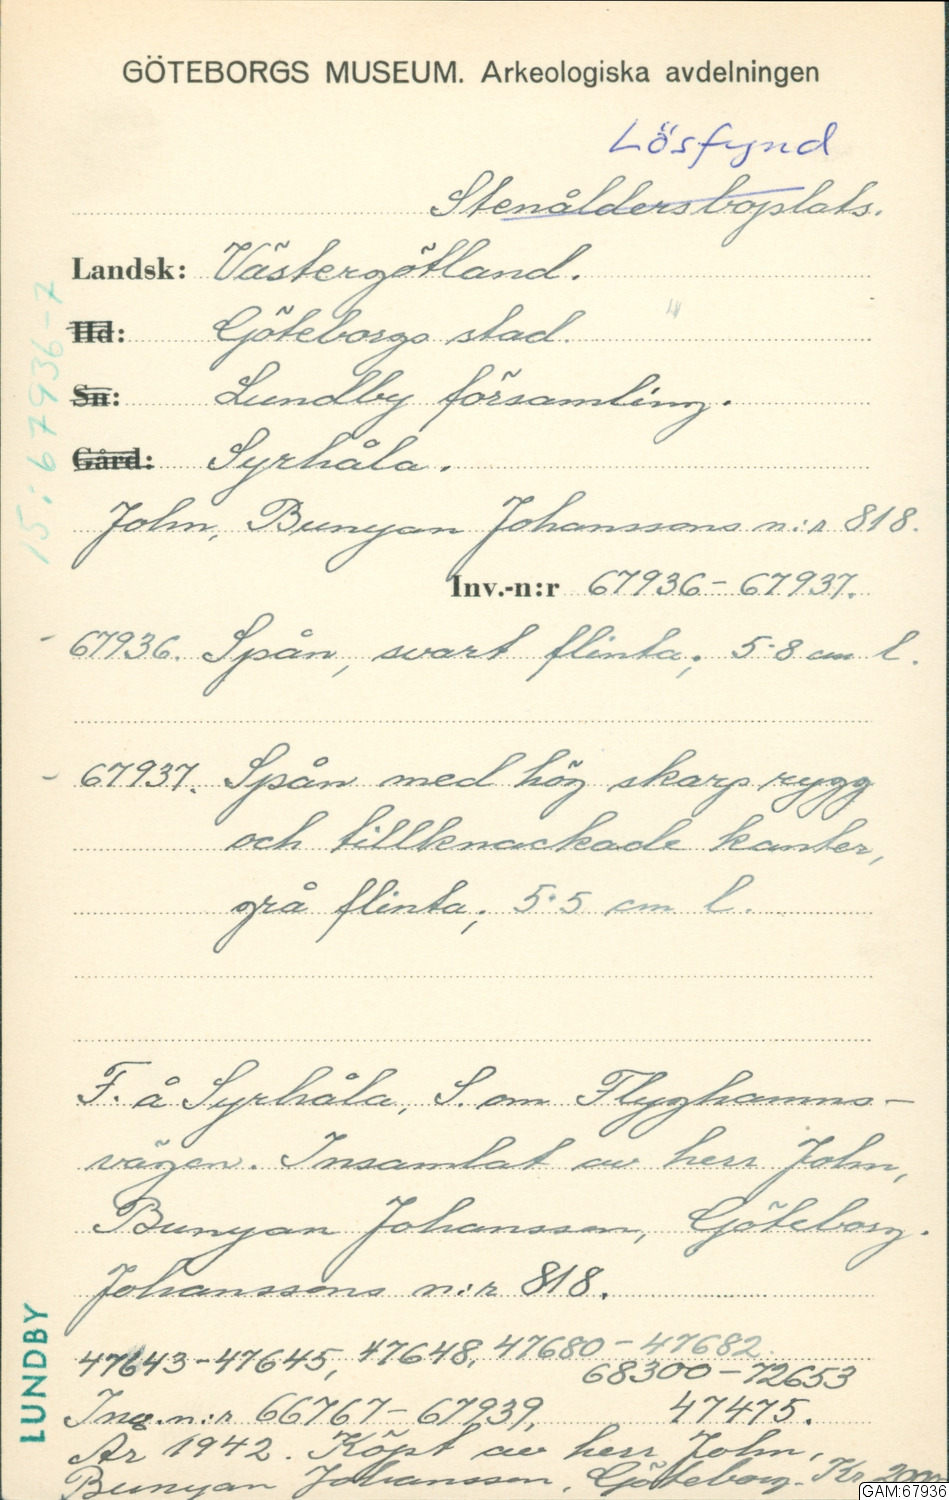 GÖTEBORGS MUSEUM. Arkeologiska avdelningen
Lösfynd
Stenåldersboplats.
Landsk: Västergötland.
Hd: Göteborgs stad.
Sn: Lundby församling.
Gård: Syrhåla.
John, Bunyan Johanssons n:r 818.
Inv.-n:r 67936-67937.
- 67936. Spån, svart flinta; 5·8 cm l.
- 67937. Spån med hög skarp rygg
och tillknackade kanter,
grå flinta; 5·5 cm l.
F. å Syrhåla, S. om Flyghamns-
vägen. Insamlat av herr John,
Bunyan Johansson, Göteborg.
Johanssons n:r 818.
47643-47645, 47648, 47680-47682.
68300-72653
Inv.n:r 66767-67939, 47475.
År 1942. Köpt av herr John,
Bunyan Johansson, Göteborg. Kr
15:67936-7
LUNDBY
GAM:67936